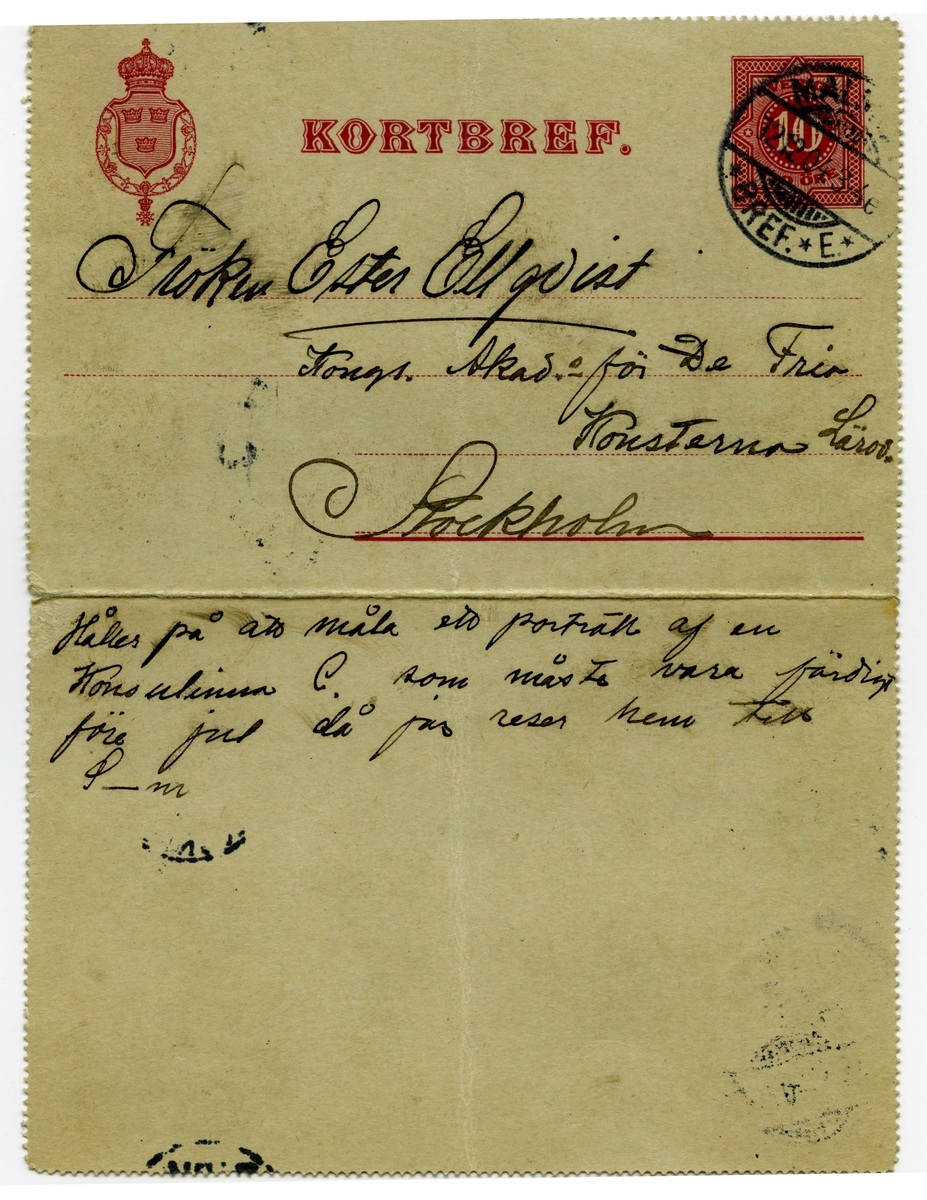 KORTBREF.
10
ÖRE
BREF. * E. *
Fröken Ester Ellqvist
Kongs. Akad. för De Fria
Konsterna Lärov.
Stockholm
Håller på att måla ett porträtt af en
Konsulinna C. som måste vara färdigt
före jul då jag reser hem till
S—m